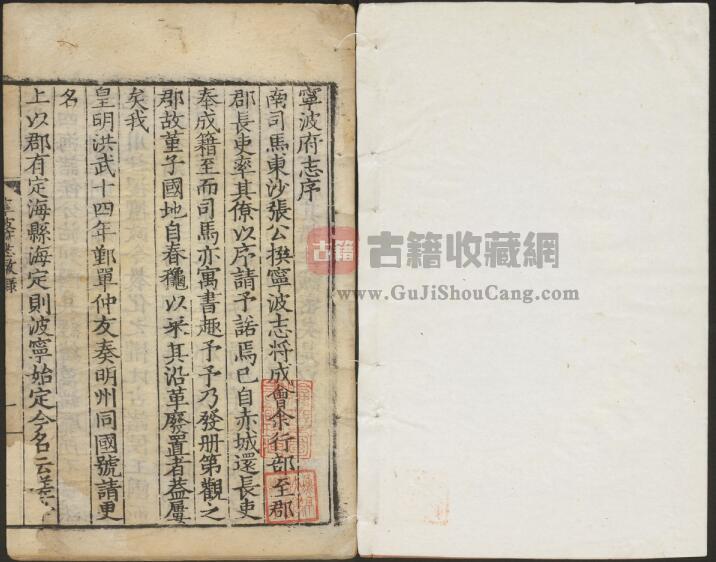 寧波府志序
南司馬東沙張公撰寧波志將成會余行部至郡
郡長吏率其僚以序請予諾焉已自赤城還長吏
奉成籍至而司馬亦寓書趣予予乃發冊第觀之
郡故堇子國地自春穐以來其沿革廢置者葢屢
矣我
皇明洪武十四年鄞單仲友奏明州同國號請更
名
上以郡有定海縣海定則波寧始定今名云
古籍
古籍收藏網
www.GuJiShouCang.com